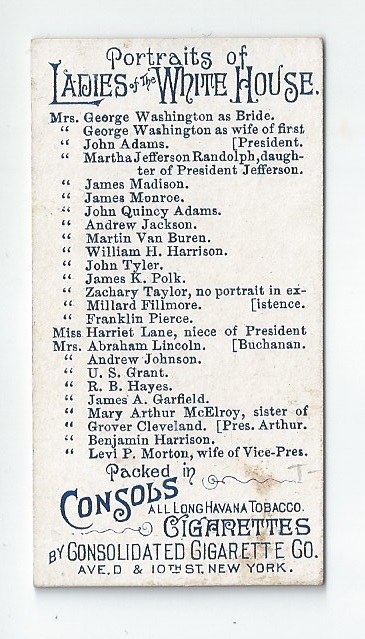 Portraits of
LADIES of The WHITE HOUSE.
Mrs. George Washington as Bride.
“ George Washington as wife of first
“ John Adams. [President.
“ Martha Jefferson Randolph, daugh-
ter of President Jefferson.
“ James Madison.
“ James Monroe.
“ John Quincy Adams.
“ Andrew Jackson.
“ Martin Van Buren.
“ William H. Harrison.
“ John Tyler.
“ James K. Polk.
“ Zachary Taylor, no portrait in ex-
“ Millard Fillmore. [istence.
“ Franklin Pierce.
Miss Harriet Lane, niece of President
Mrs. Abraham Lincoln. [Buchanan.
“ Andrew Johnson.
“ U. S. Grant.
“ R. B. Hayes.
“ James A. Garfield.
“ Mary Arthur McElroy, sister of
“ Grover Cleveland. [Pres. Arthur.
“ Benjamin Harrison.
“ Levi P. Morton, wife of Vice-Pres.
Packed in
CONSOLS
ALL LONG HAVANA TOBACCO.
CIGARETTES
BY CONSOLIDATED CIGARETTE CO.
AVE. D & 10TH ST. NEW YORK.